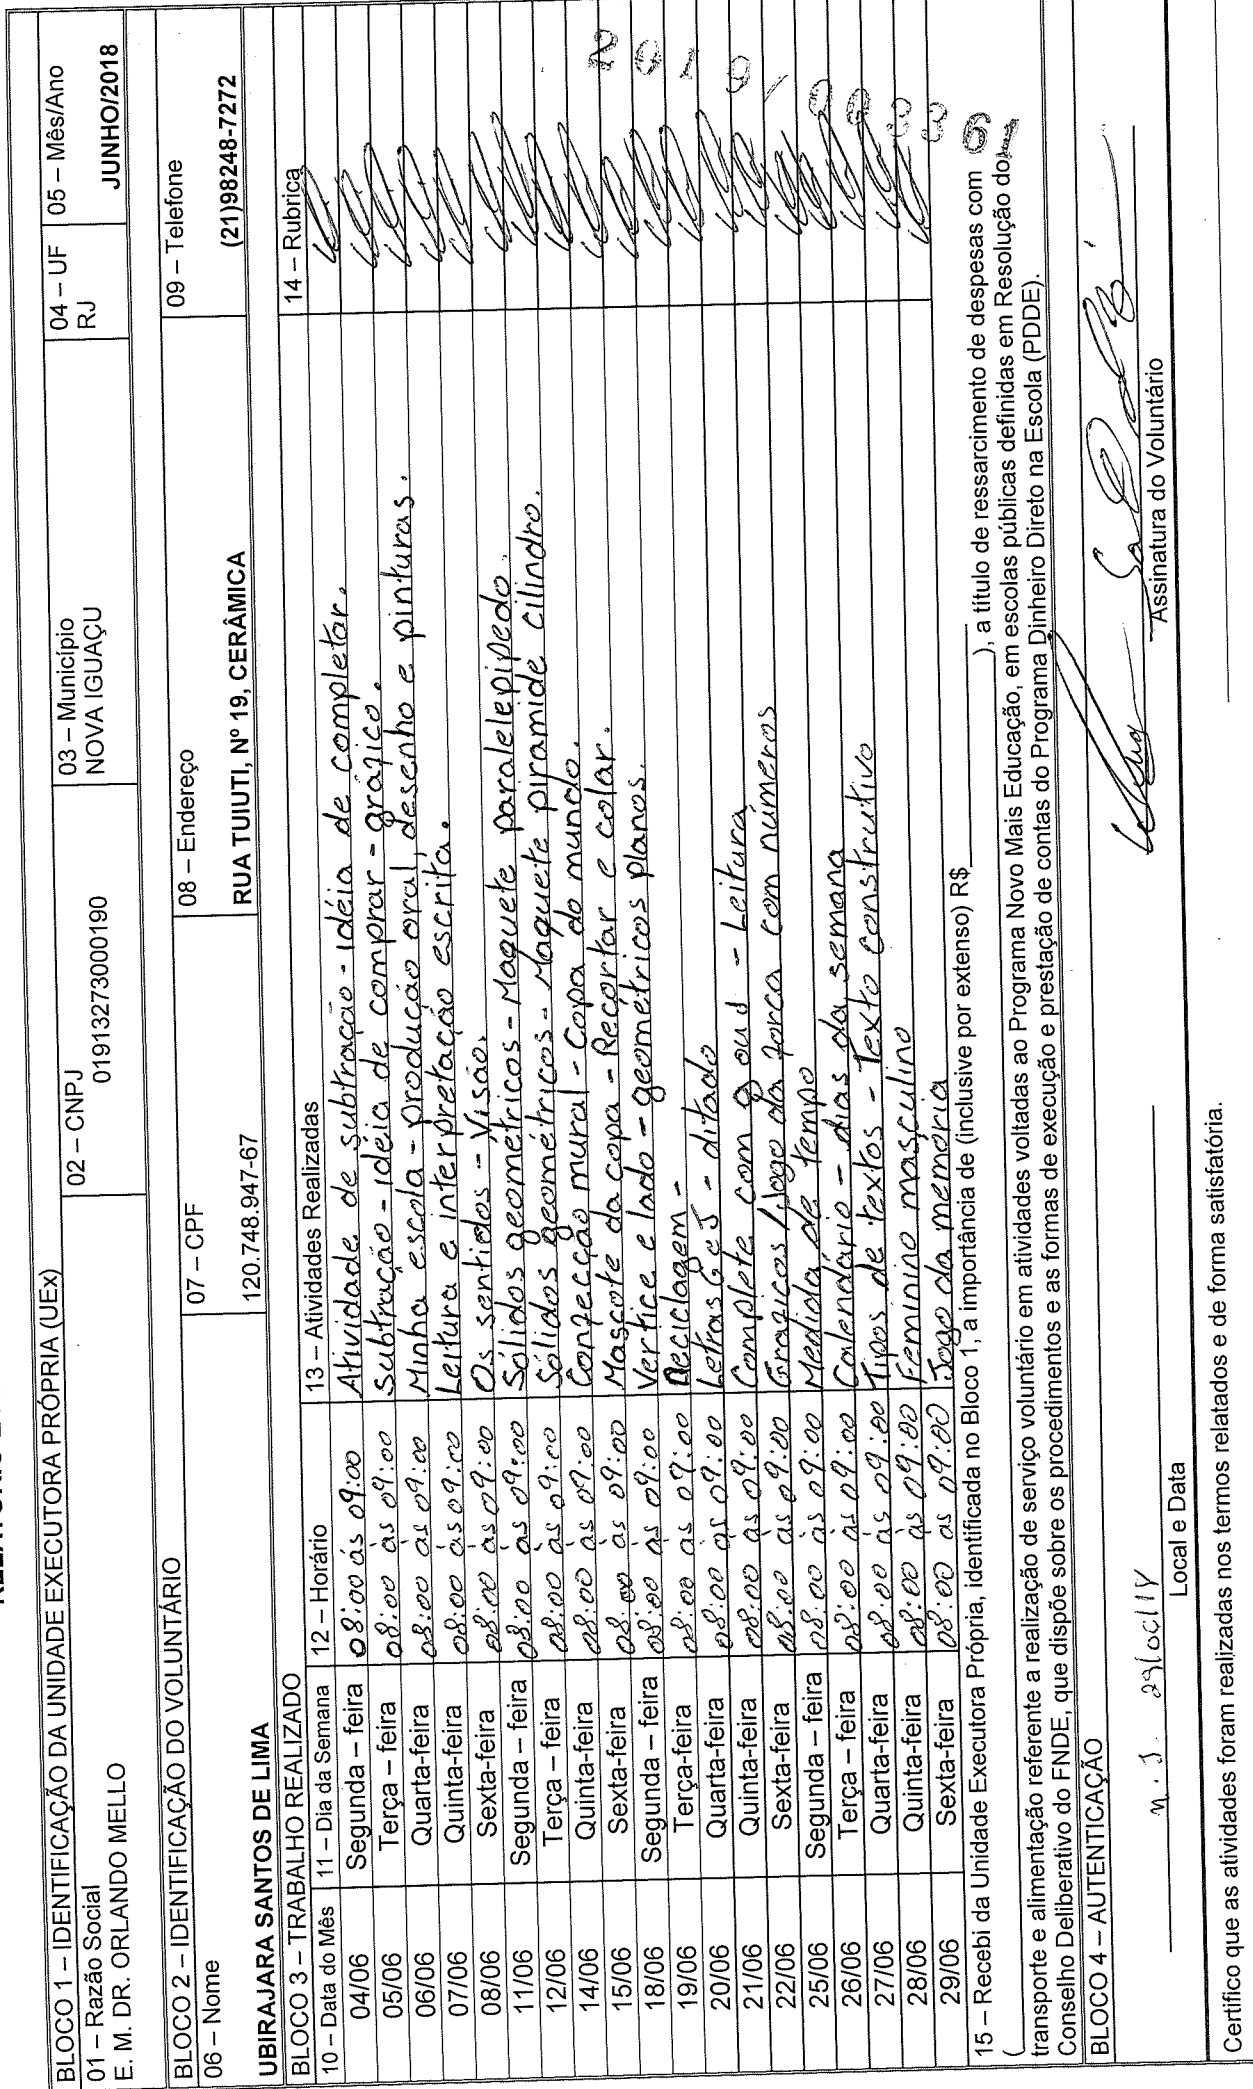 BLOCO 1 – IDENTIFICAÇÃO DA UNIDADE EXECUTORA PRÓPRIA (UEx)
01 – Razão Social
E. M. DR. ORLANDO MELLO
02 – CNPJ
01913273000190
03 – Município
NOVA IGUAÇU
04 – UF
RJ
05 – Mês/Ano
JUNHO/2018
BLOCO 2 – IDENTIFICAÇÃO DO VOLUNTÁRIO
06 – Nome
UBIRAJARA SANTOS DE LIMA
07 – CPF
120.748.947-67
08 – Endereço
RUA TUIUTI, Nº 19, CERÂMICA
09 – Telefone
(21)98248-7272
BLOCO 3 – TRABALHO REALIZADO
10 – Data do Mês 11 – Dia da Semana 12 – Horário 13 – Atividades Realizadas 14 – Rubrica
04/06 Segunda – feira 08:00 ás 09:00 Atividade de subtração - idéia de completar.
05/06 Terça – feira 08:00 às 09:00 Subtração - idéia de comprar - gráfico.
06/06 Quarta-feira 08:00 às 09:00 Minha escola - produção oral, desenho e pinturas.
07/06 Quinta-feira 08:00 às 09:00 Leitura e interpretação escrita.
08/06 Sexta-feira 08:00 às 09:00 Os sentidos - Visão.
11/06 Segunda – feira 08:00 às 09:00 Sólidos geométricos - Maquete paralelepipedo.
12/06 Terça – feira 08:00 às 09:00 Sólidos geométricos - Maquete piramide cilindro.
14/06 Quinta-feira 08:00 às 09:00 Confecção mural - Copa do mundo.
15/06 Sexta-feira 08:00 às 09:00 Mascote da copa - Recortar e colar.
18/06 Segunda – feira 08:00 às 09:00 Vertice e lado - geométricos planos.
19/06 Terça-feira 08:00 às 09:00 Reciclagem -
20/06 Quarta-feira 08:00 às 09:00 Letras G e J - ditado
21/06 Quinta-feira 08:00 às 09:00 Complete com g ou J - Leitura
22/06 Sexta-feira 08:00 às 09:00 Graficos / Jogo da forca com números
25/06 Segunda – feira 08:00 às 09:00 Medida de tempo
26/06 Terça – feira 08:00 às 09:00 Calendário - dias da semana
27/06 Quarta-feira 08:00 às 09:00 Tipos de textos - Texto construtivo
28/06 Quinta-feira 08:00 às 09:00 Feminino masculino
29/06 Sexta-feira 08:00 as 09:00 Jogo da memória
15 – Recebi da Unidade Executora Própria, identificada no Bloco 1, a importância de (inclusive por extenso) R$
( ), a título de ressarcimento de despesas com
transporte e alimentação referente a realização de serviço voluntário em atividades voltadas ao Programa Novo Mais Educação, em escolas públicas definidas em Resolução do
Conselho Deliberativo do FNDE, que dispõe sobre os procedimentos e as formas de execução e prestação de contas do Programa Dinheiro Direto na Escola (PDDE).
BLOCO 4 – AUTENTICAÇÃO
Local e Data
Assinatura do Voluntário
Certifico que as atividades foram realizadas nos termos relatados e de forma satisfatória.